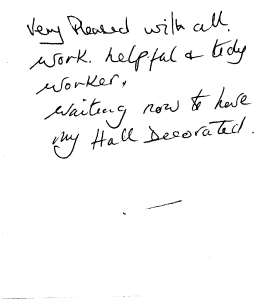 Very Pleased with all.
work. helpful & tidy
worker.
waiting now to have
my Hall Decorated.